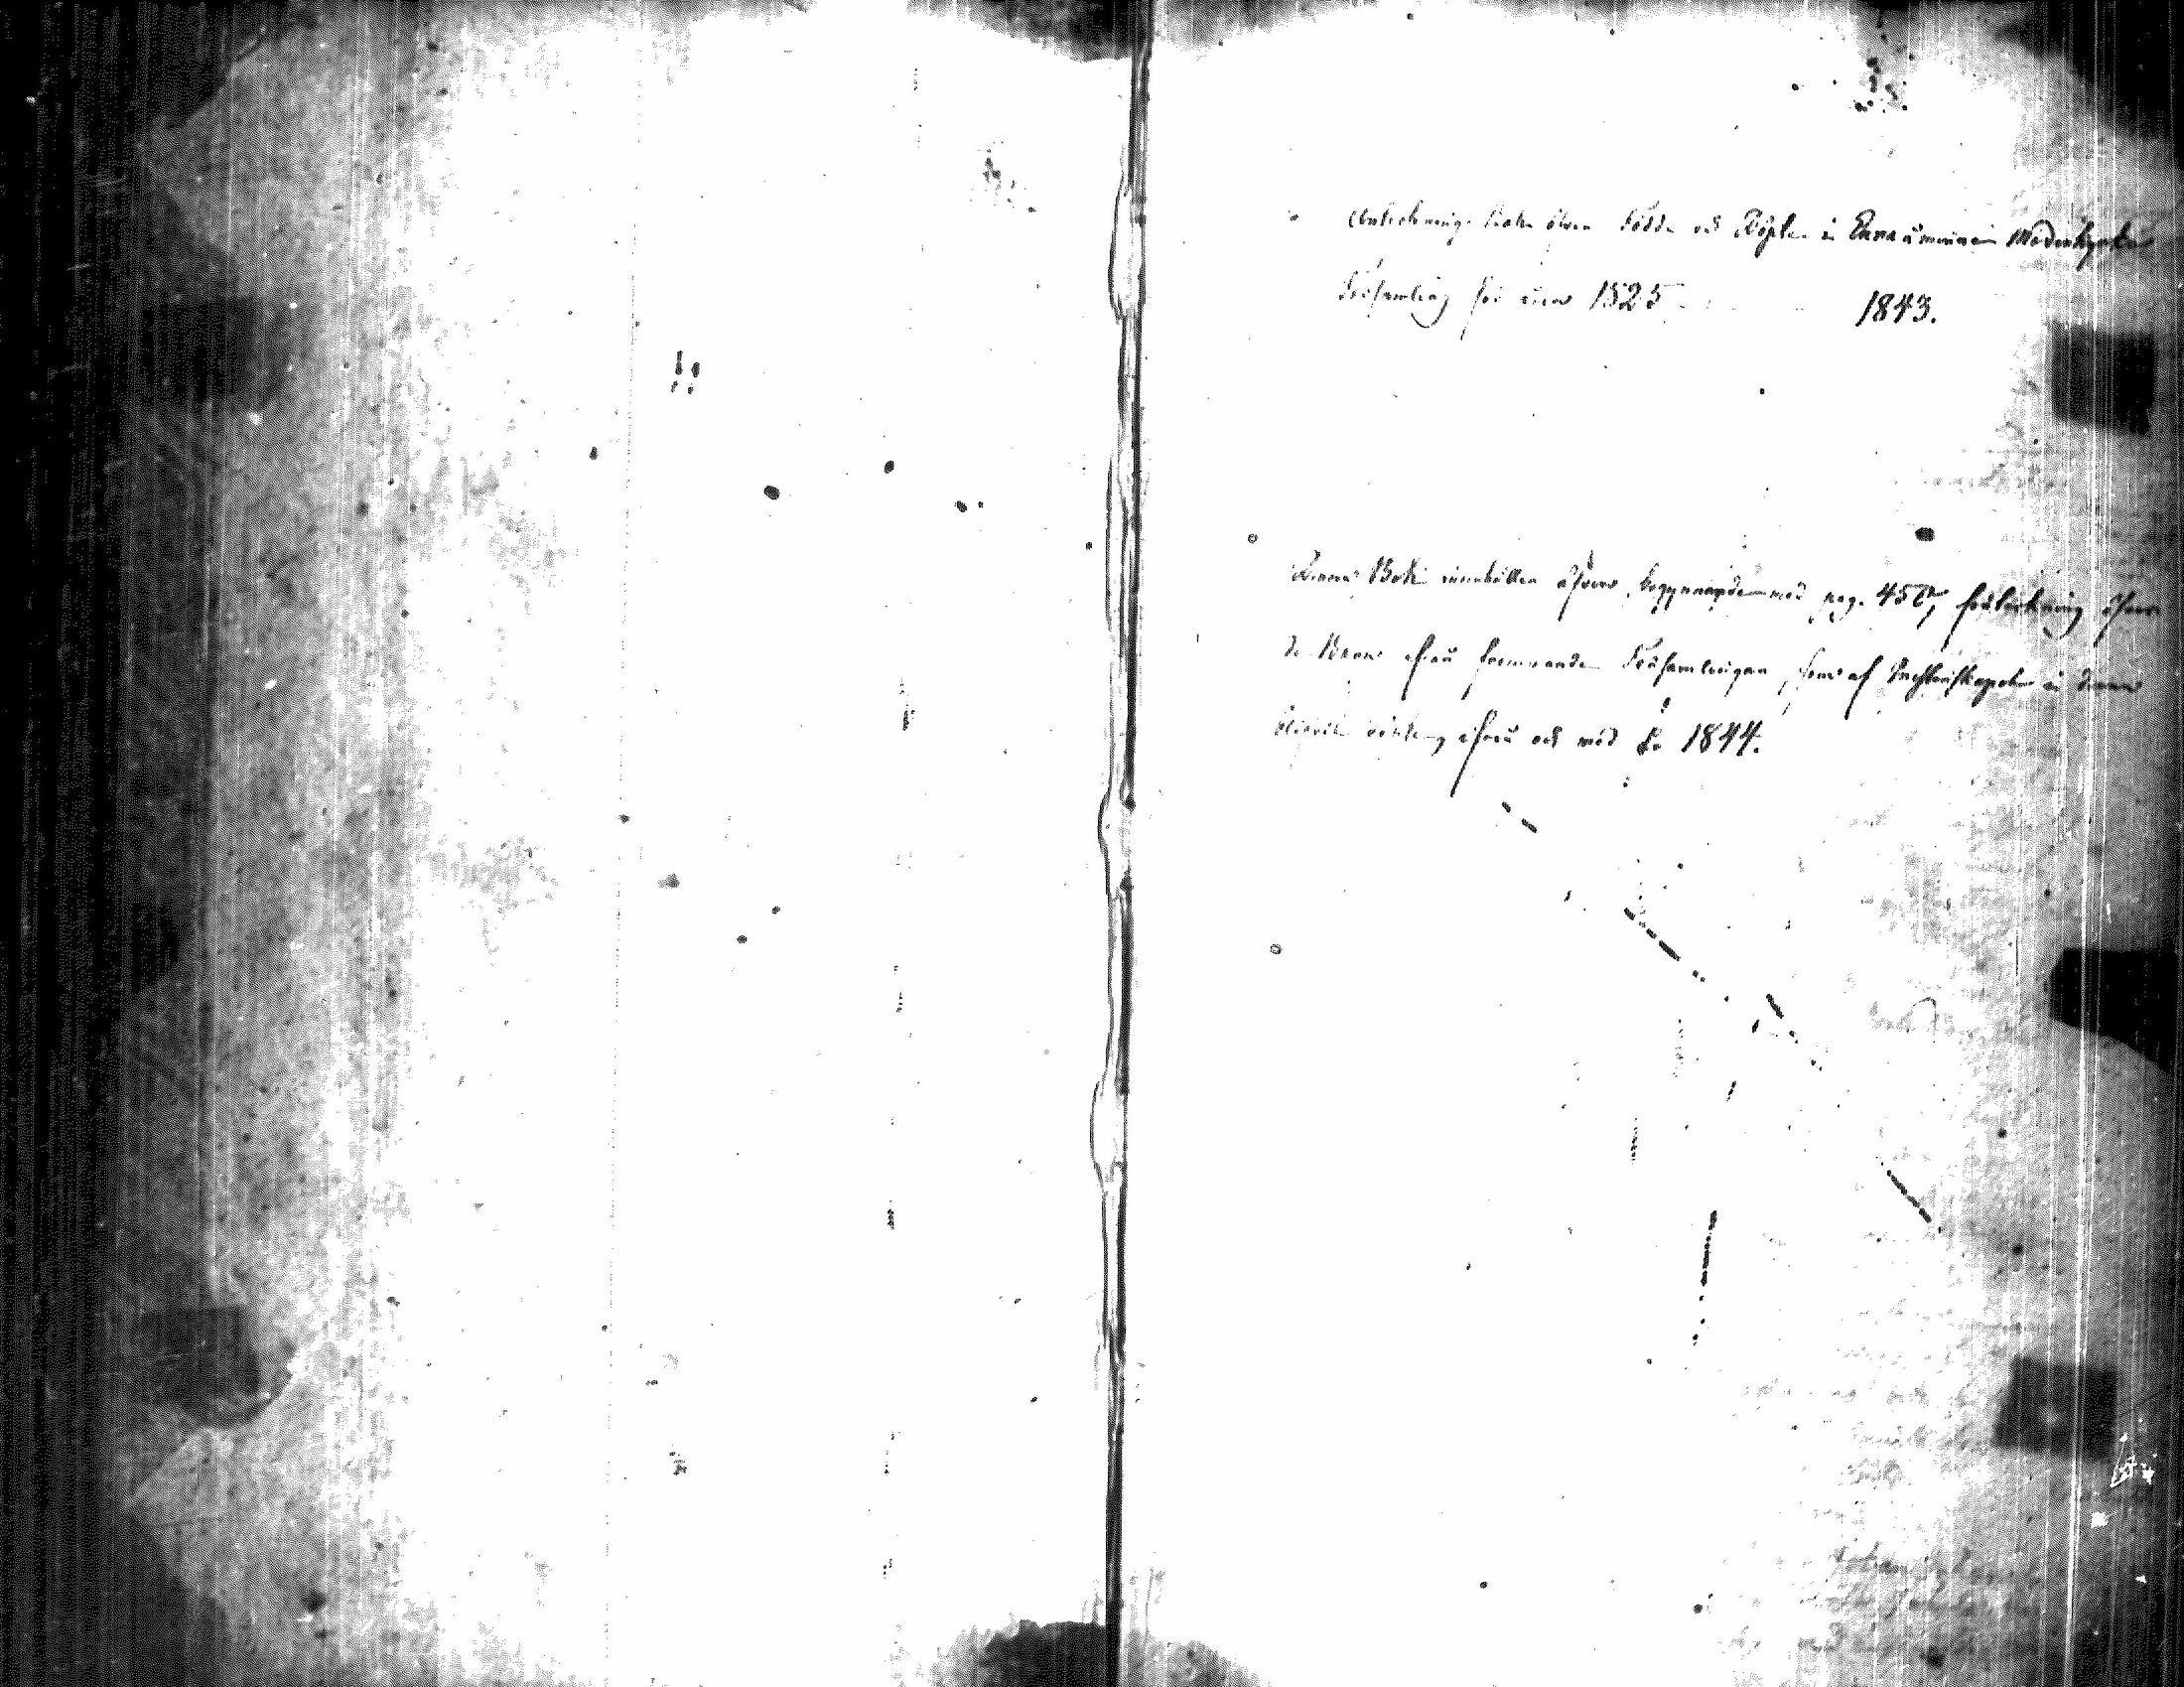 Anteckningsbok öfver Födde och Döpte i Moderkyrko
Församling för åren 1825 1843.
Denna Bok innehåller äfven, begynnande med pag. 457, förteckning öfver
de Barn ifrån främmande Församlingar, som af i denna
blifvit ifrån och med År 1844.